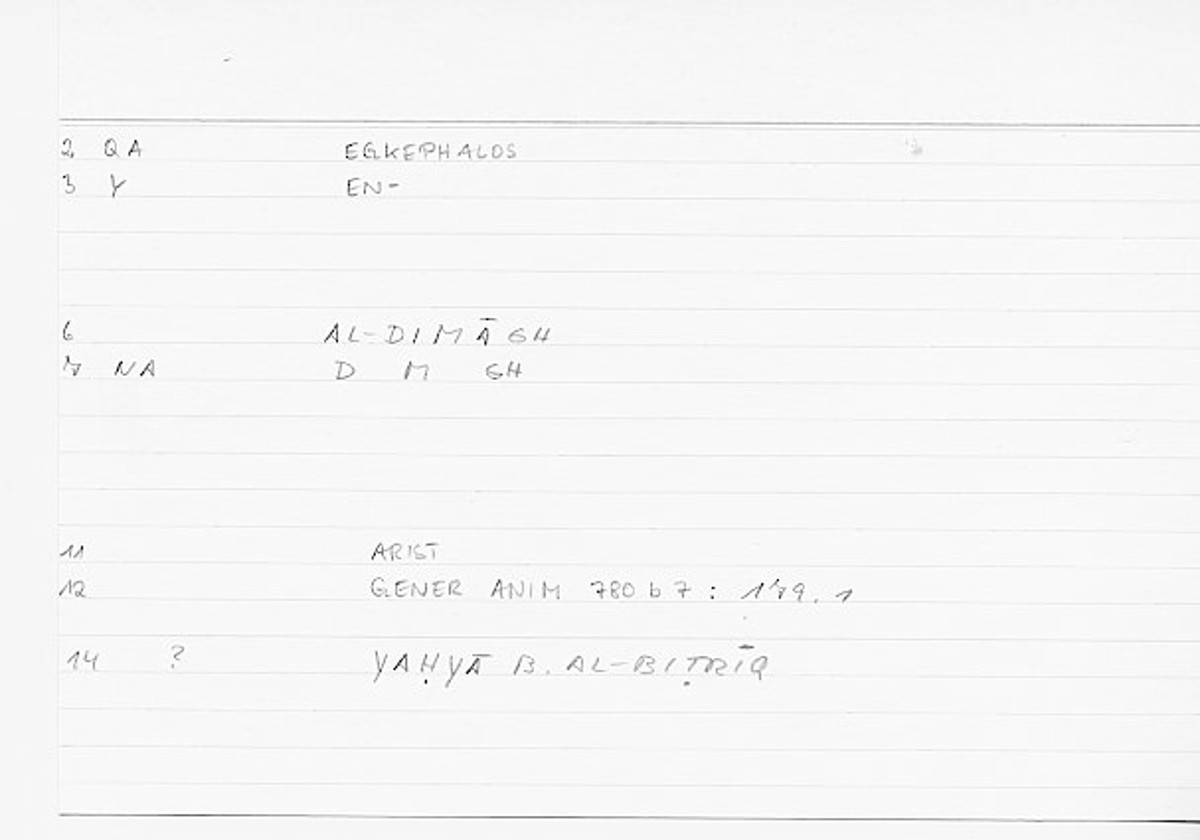 2 QA EGKEPHALOS
3 Y EN-
6 AL-DIMĀGH
7 NA D M GH
11 ARIST
12 GENER ANIM 780 b 7 : 179.1
14 ? YAḤYĀ B. AL-BIṬRĪQ